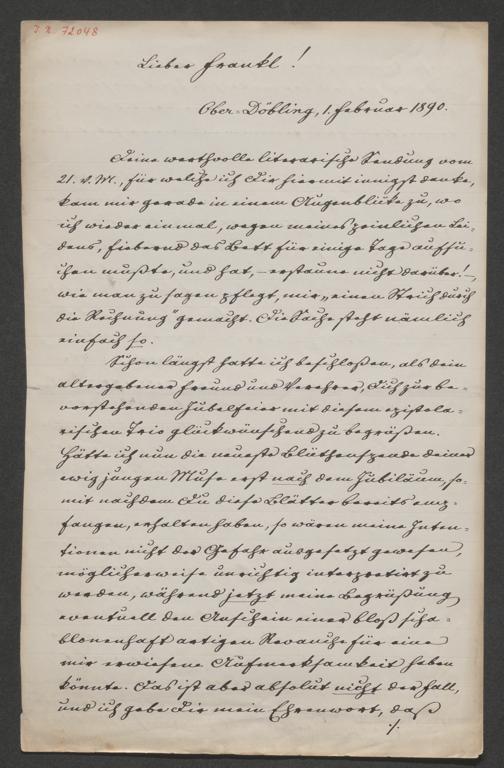 I. N. 72048
Lieber Frankl!
Ober-Döbling, 1. Februar 1890.
Deine werthvolle literarische Sendung vom
21. v. M., für welche ich Dir hiermit innigst danke,
kam mir gerade in einem Augenblicke zu, wo
ich wieder einmal, wegen meines peinlichen Lei-
dens, fiebernd das Bett für einige Tage aufsu-
chen mußte, und hat, – erstaune nicht darüber! –,
wie man zu sagen pflegt, mir „einen Strich durch
die Rechnung" gemacht. Die Sache steht nämlich
einfach so.
Schon längst hatte ich beschloßen, als dein
altergebener Freund und Verehrer, Dich zur be-
vorstehenden Jubelfeier mit diesem epistola-
rischen Trio glückwünschend zu begrüßen.
Hätte ich nun die neueste Blüthenspende deiner
ewig jungen Muse erst nach dem Jubiläum, so-
mit nachdem Du diese Blätter bereits emp-
fangen, erhalten haben, so wären meine Inten-
tionen nicht der Gefahr ausgesetzt gewesen,
möglicherweise unrichtig interpretirt zu
werden, während jetzt meine Begrüßung
eventuell den Anschein einer bloß scha-
blonenhaft artigen Revanche für eine
mir erwiesene Aufmerksamkeit haben
könnte. Das ist aber absolut nicht der Fall,
und ich gebe Dir mein Ehrenwort, daß
./.